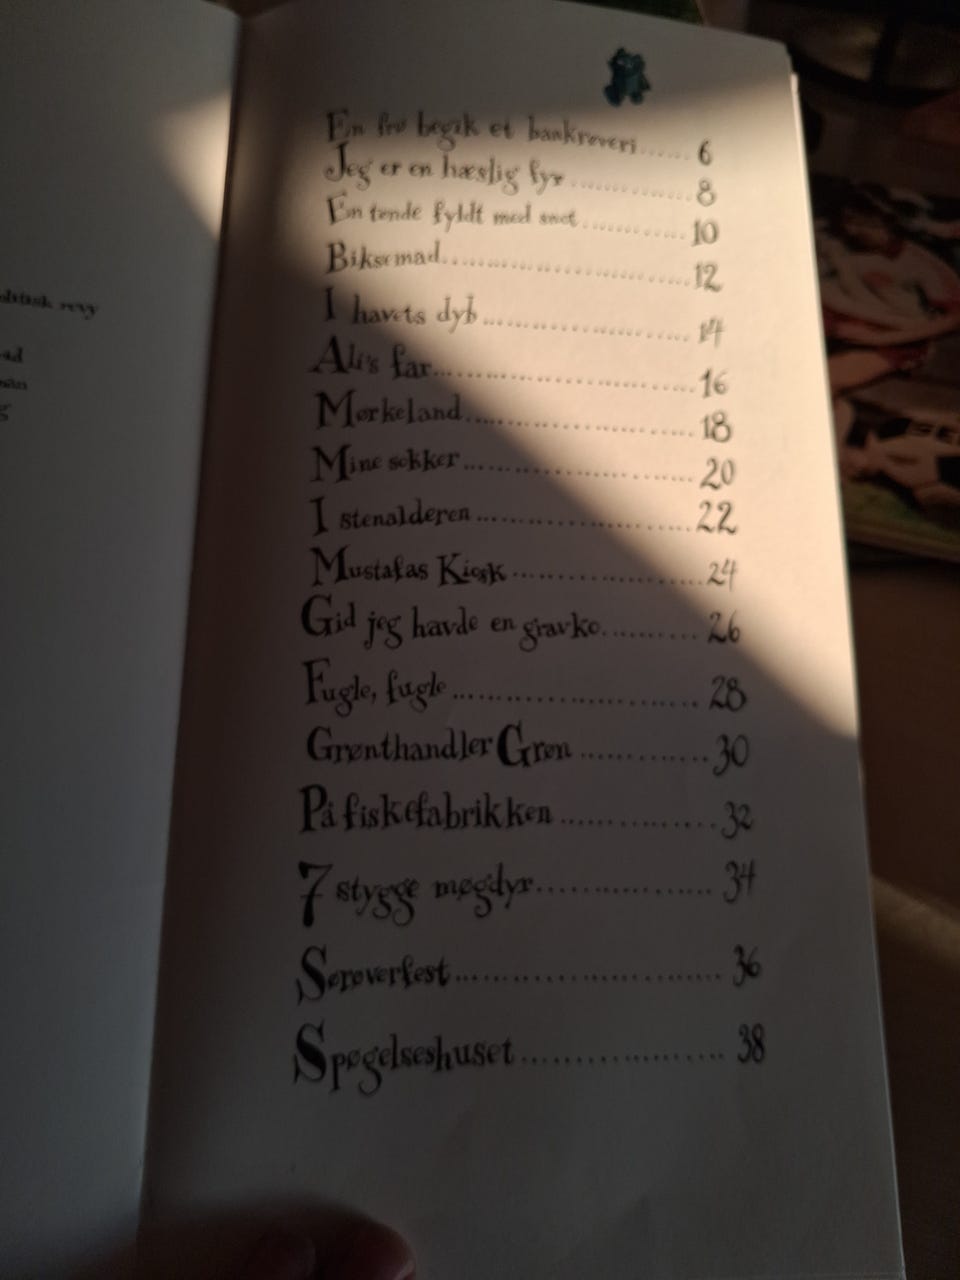 revy
En frø begik et bankrøveri...... 6
Jeg er en hæslig fyr............... 8
En tønde fyldt med snot............ 10
Biksemad.............................. 12
I havets dyb......................... 14
Ali's far............................... 16
Mørkeland........................... 18
Mine sokker........................ 20
I stenalderen...................... 22
Mustafas Kiosk................... 24
Gid jeg havde en gravko.......... 26
Fugle, fugle......................... 28
Grønthandler Grøn ............ 30
På fiskefabrikken............... 32
7 stygge møgdyr................. 34
Sørøverfest........................ 36
Spøgelseshuset.................. 38